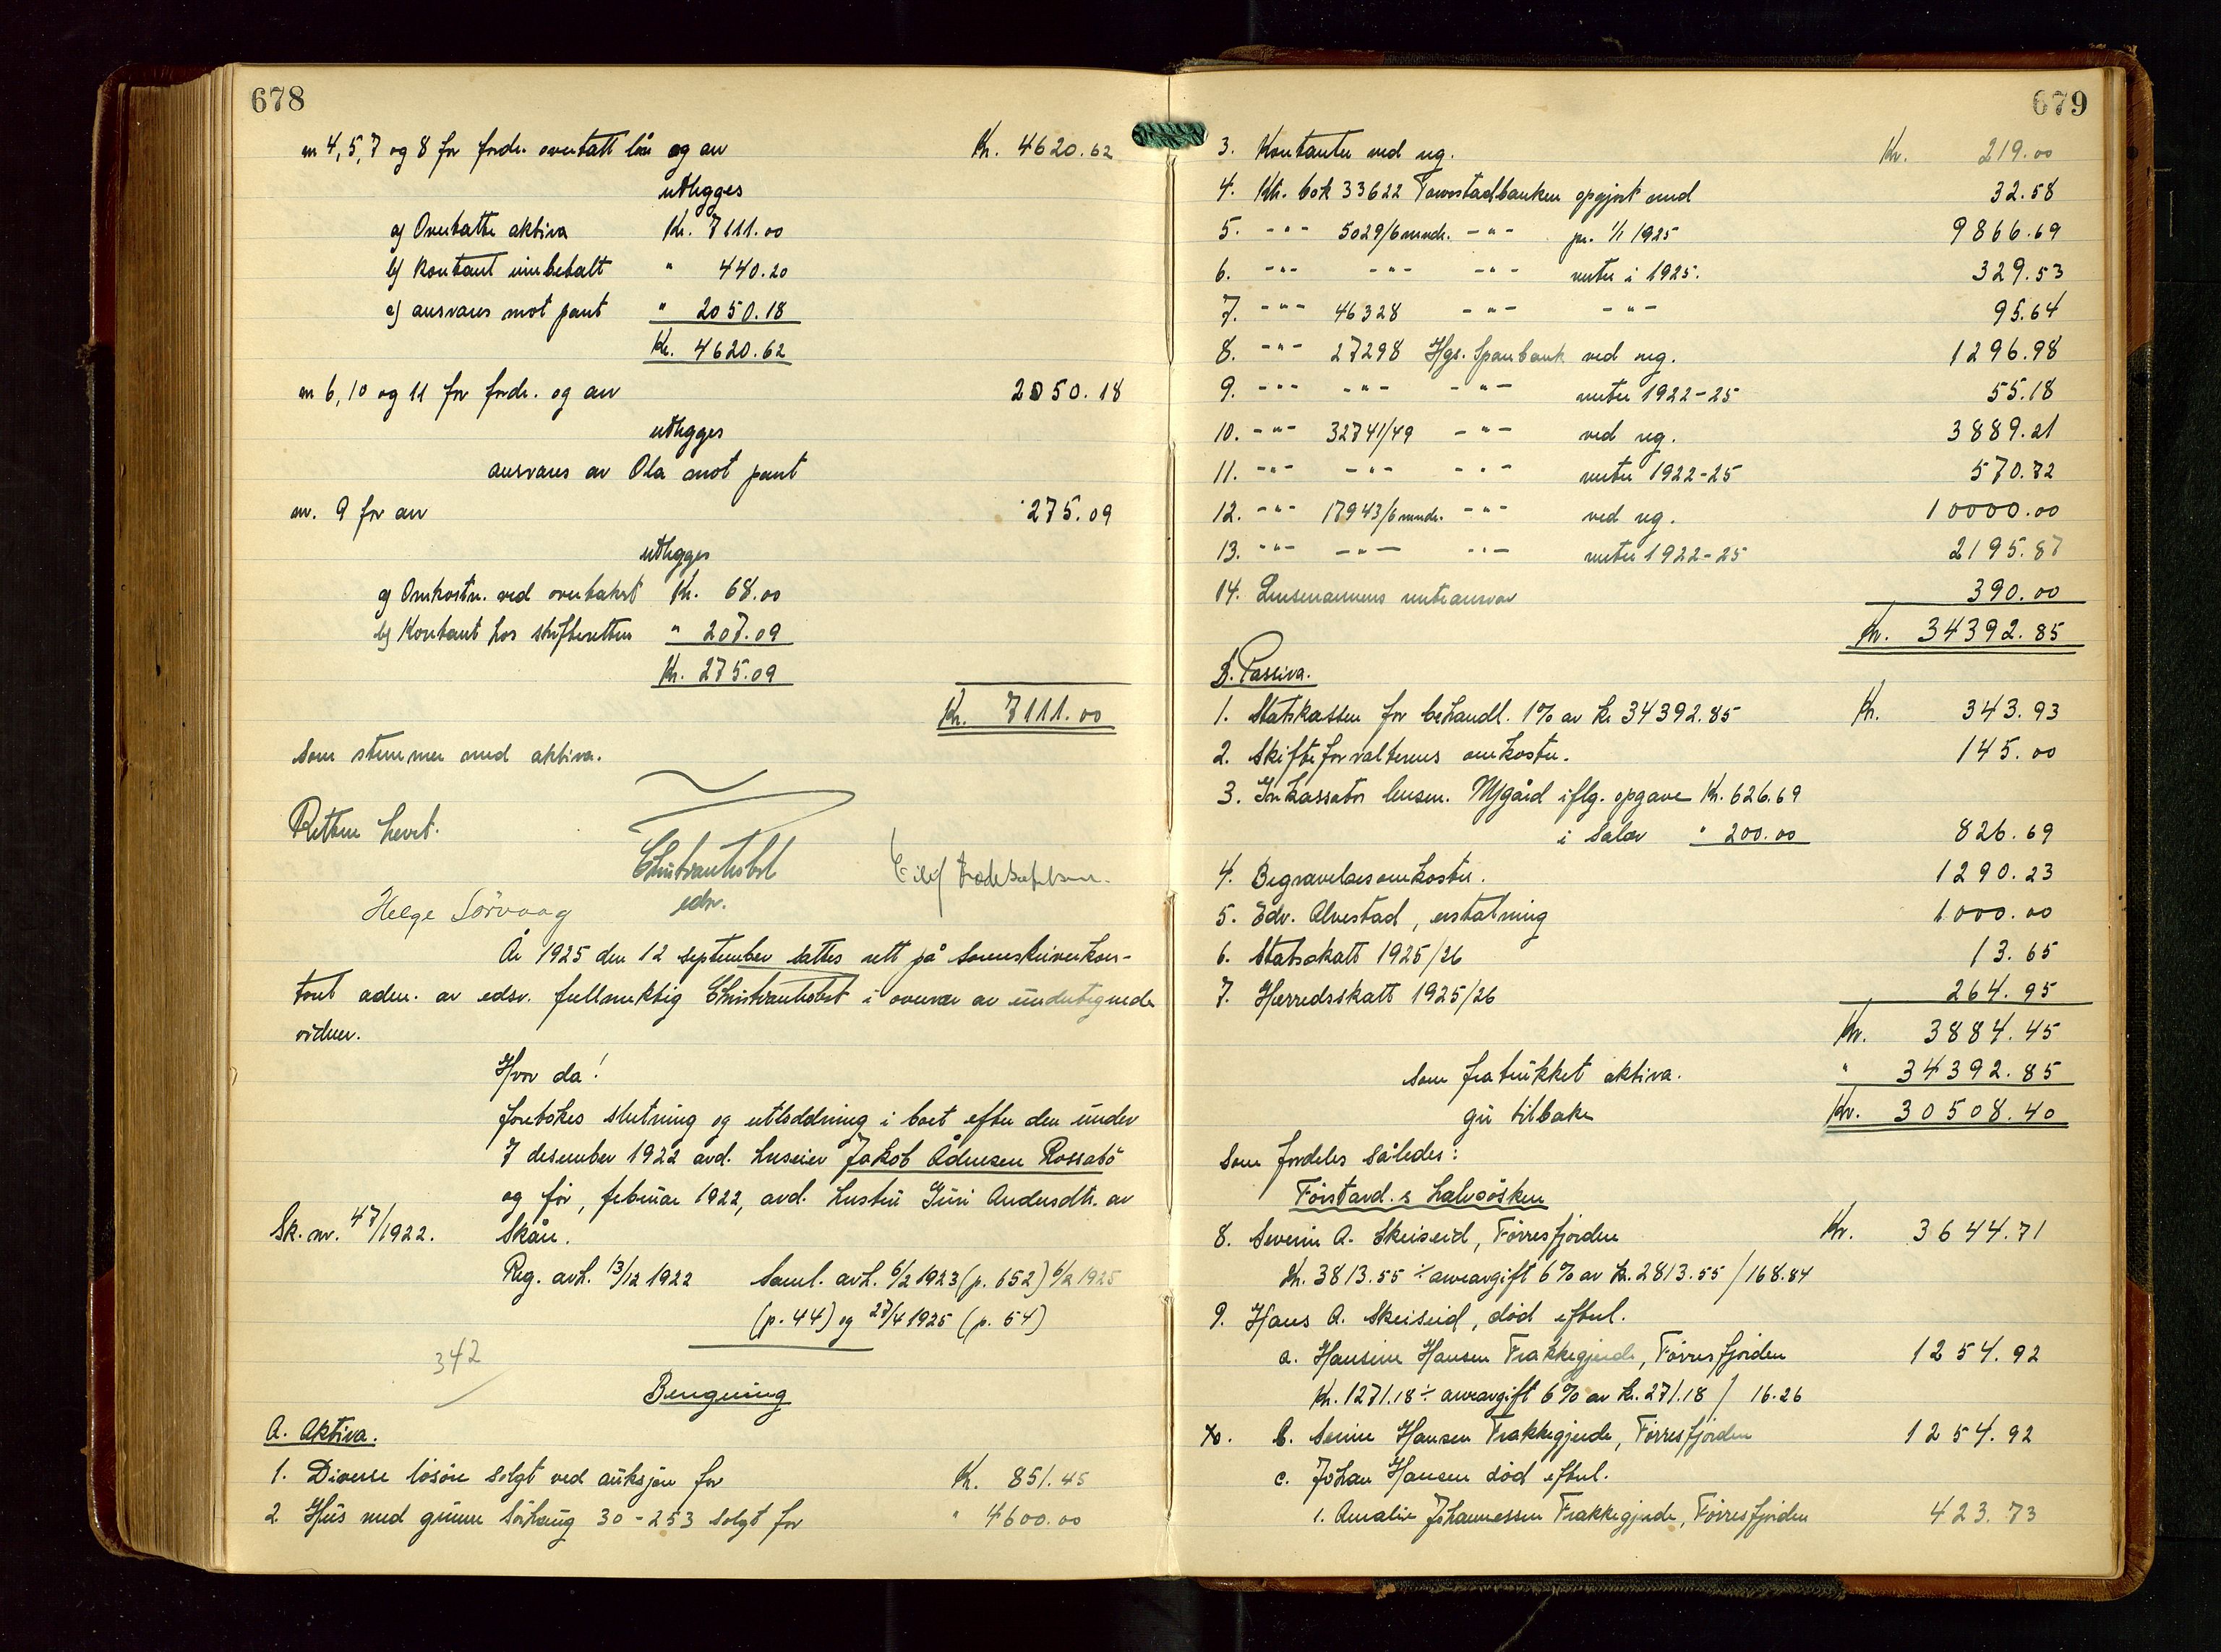 678
nr 4, 5, 7 og 8 for fordr. overtatt lån og arv Kr. 4620.62
utlegges
a) Overtatte aktiva Kr. 7111.00
b) Kontant innbetalt " 440.20
c) ansvares mot pant " 2050.18
Kr. 4620.62
nr 6, 10 og 11 for fordr. og arv 2050.18
utlegges
ansvares av Ola mot pant
nr. 9 for arv 275.09
utlegges
a) Omkostn. ved overtakst Kr. 68.00
b) Kontant hos skifteretten " 207.09
Kr. 275.09
Kr. 7111.00
som stemmer med aktiva.
Retten hevet.
edsv.
Helge Sörvaag
År 1925 den 12 september sattes rett på Sorenskriverkon-
toret adm. av edsv. fullmektig i overvær av undertegnede
vidner.
Hvor da!
foretokes slutning og utloddning i boet efter den under
7 desember 1922 avd. huseier Jakob Ådnesen Rossabö
og før, februar 1922, avd. hustru Guri Andersdtr. av
Sk. nr. 47/1922. Skåre.
Reg. avh. 13/12 1922 Saml. avh. 6/2 1923 (p. 652) 6/2 1925
(p. 44) og 27/4 1925 (p. 54)
342
Beregning
A. Aktiva.
1. Diverse løsøre solgt ved auksjon for Kr. 851.45
2. Hus med grunn Sörhaug 30-253 solgt for " 4600.00
679
3. Kontanter ved reg. Kr. 219.00
4. Ktr. bok 33622 Torvestadbanken opgjort med 32.58
5. -"- 5029/6 mndr. -"- pr. 1/1 1925 9866.69
6. -"- -"- -"- renter i 1925. 329.53
7. -"- 46328 -"- -"- 95.64
8. -"- 27298 Hgs. Sparebank ved reg. 1296.98
9. -"- -"- -"- renter 1922-25 55.18
10. -"- 32741/49 -"- ved reg. 3889.21
11. -"- -"- -"- renter 1922-25 570.72
12. -"- 17943/6 mndr. -"- ved reg. 10000.00
13. -"- -"- -"- renter 1922-25 2195.87
14. Lensmannens renteansvar 390.00
Kr. 34392.85
B. Passiva.
1. Statskassen for behandl. 1% av kr 34392.85 Kr. 343.93
2. Skifteforvalterens omkostn. 145.00
3. Inkassator lensm. Nygård iflg. opgave Kr. 626.69
i Salær " 200.00 826.69
4. Begravelsesomkostn. 1290.23
5. Edv. Alvestad, erstatning 1000.00
6. Statsskatt 1925/26 13.65
7. Herredsskatt 1925/26 264.95
Kr. 3884.45
som fratrukket aktiva. " 34392.85
gir tilbake Kr. 30508.40
Som fordeles således:
Förstavd.s halvsösken
8. Severin A. Skeiseid, Förresfjorden Kr. 3644.71
Kr. 3813.55 ÷ arveavgift 6% av kr. 2813.55 / 168.84
9. Hans A. Skeiseid, död efterl.
a. Hansine Hansen Frakkegjerde, Förresfjorden 1254.92
Kr. 1271.18 ÷ arveavgift 6% av kr. 271.18 / 16.26
10. b. Serine Hansen Frakkegjerde, Förresfjorden 1254.92
c. Johan Hansen död efterl.
1. Amalie Johannessen Frakkegjerde, Förresfjorden 423.73